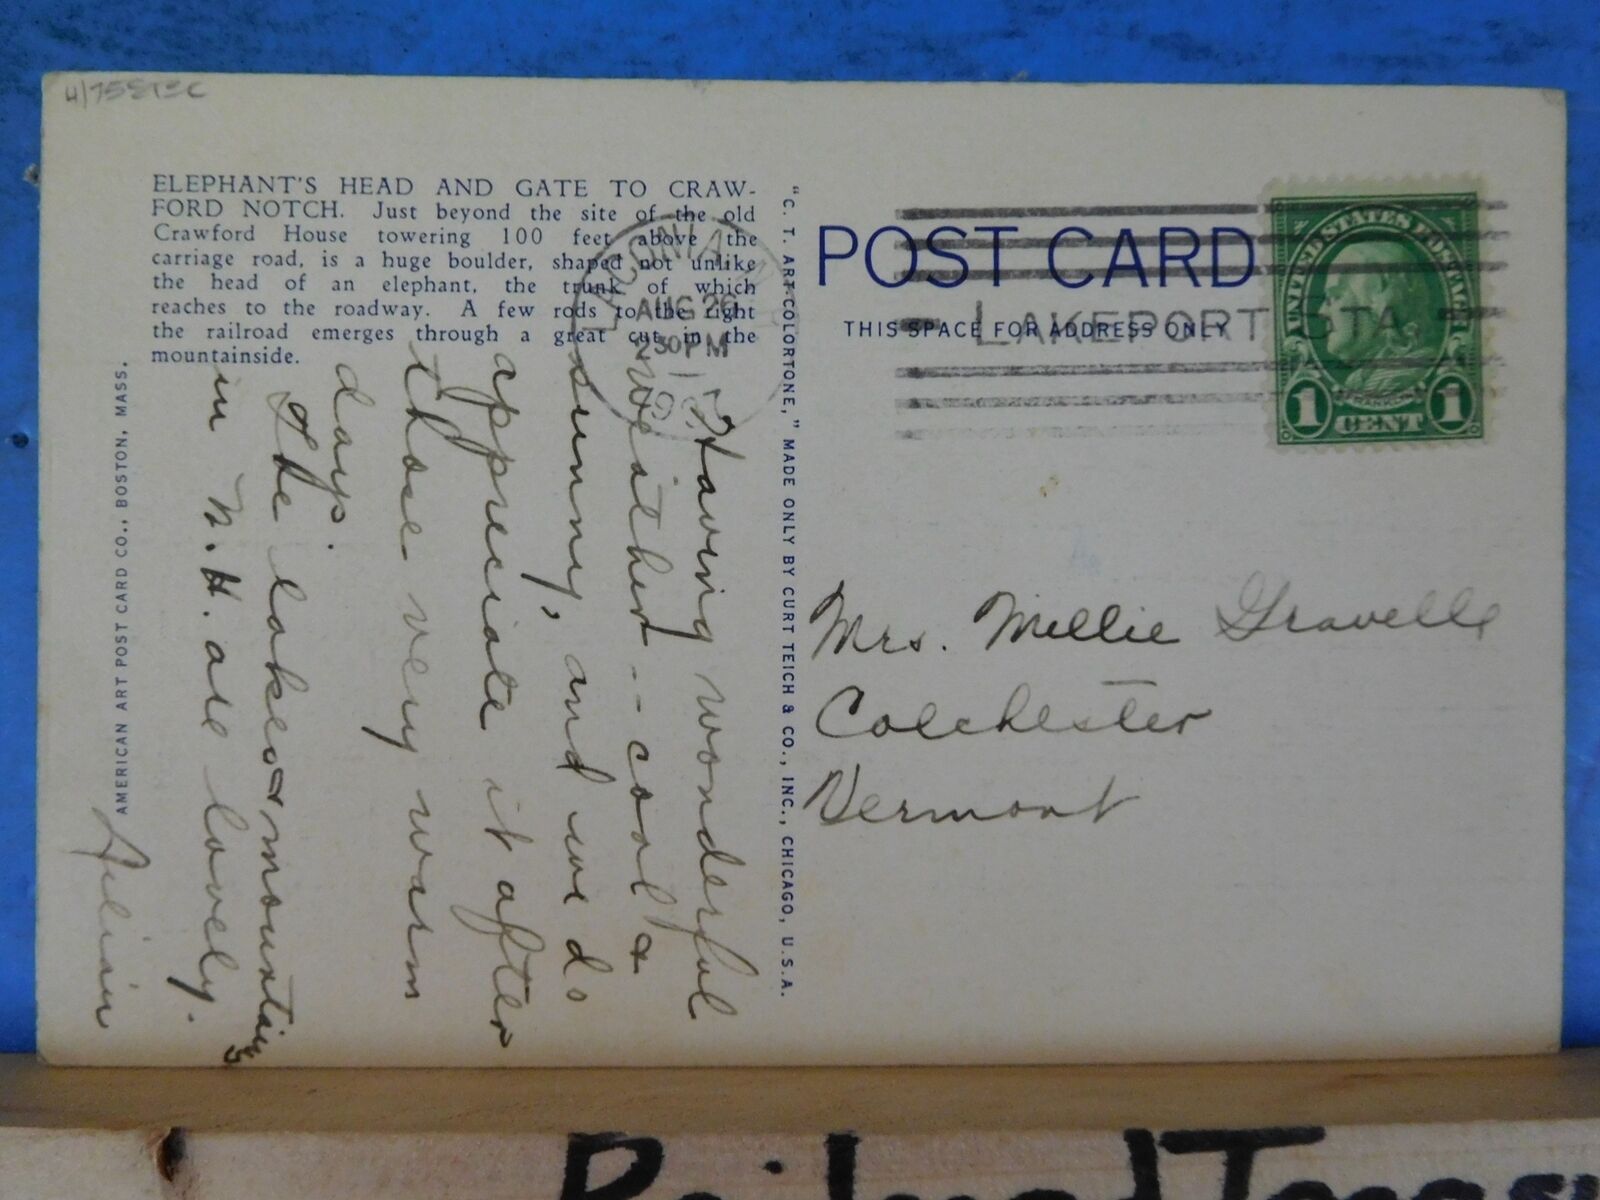 ELEPHANT'S HEAD AND GATE TO CRAW-
FORD NOTCH. Just beyond the site of the old
Crawford House towering 100 feet above the
carriage road, is a huge boulder, shaped not unlike
the head of an elephant, the trunk of which
reaches to the roadway. A few rods to the right
the railroad emerges through a great cut in the
mountainside.
AMERICAN ART POST CARD CO., BOSTON, MASS.
"C. T. ART-COLORTONE," MADE ONLY BY CURT TEICH & CO., INC., CHICAGO, U.S.A.
POST CARD
THIS SPACE FOR ADDRESS ONLY
LACONIA
AUG 26
2 30 PM
LAKEPORT STA.
UNITED STATES POSTAGE
FRANKLIN
1 CENT 1
Having wonderful
weather -- cool &
sunny, and we do
appreciate it after
those very warm
days.
The lakes & mountains
in N. H. are lovely.
Mrs. Millie Gravelle
Colchester
Vermont